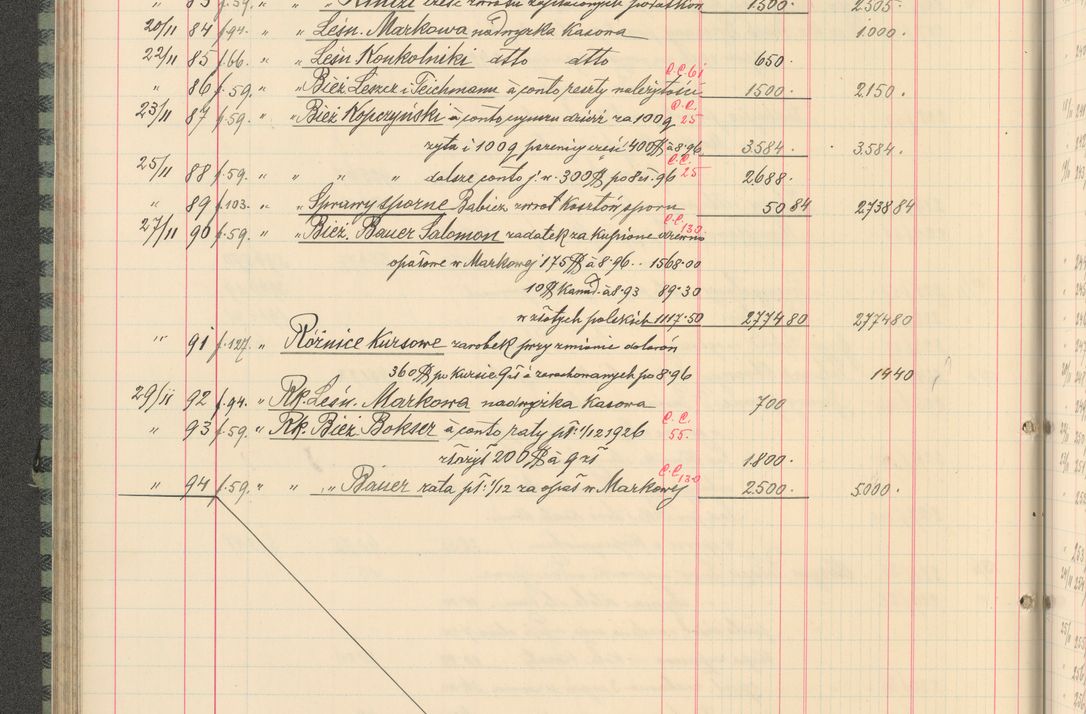 " 83 f.59. " " część zwrotu zapłaconych podatków 1500· 2505·
20/11 84 f.94. " " Leśn. Markowa nadwyżka Kasowa 1.000·
22/11 85 f.66. " " Leśn Konkolniki dtto dtto 650·
" 86 f.59. " " Bież Leszcz i Teichmann à conto reszty należytości C.C.61 1500· 2150·
23/11 87 f.59. " " Bież Kopczyński à conto czynszu dzierż za 100 q C.C. 25
żyta i 100 q pszenicy część 400 $ à 8·96 3584· 3584·
25/11 88 f.59. " " " " dalsze conto j.w. 300 $ po 8 zł. 96 C.C. 25 2688·
" 89 f.103. " " Sprawy sporne Babicz zwrot Kosztów sporu 50 84 2738 84
27/11 90 f.59. " " Bież. Bauer Salomon zadatek za Kupione drzewo C.C. 130
opałowe w Markowej 175 $ à 8·96·· 1568·00
10 $ Kanad. à 8·93 89·30
w złotych polskich 1117·50 2774 80 2774 80
" 91 f.127. " Różnice Kursowe zarobek przy zmianie dolarów
360 $ po kursie 9 zł à zarachowanych po 8·96 14 40
29/11 92 f.94. " Rk. Leśn. Markowa nadwyżka Kasowa 700
" 93 f.59. " Rk. Bież. Bokser à conto raty pł: 1/12 1926 C.C. 55.
złożył 200 $ à 9 zł 1.800·
" 94 f.59. " " " Bauer rata pł: 1/12 za opał w Markowej C.C. 130 2500· 5.000·